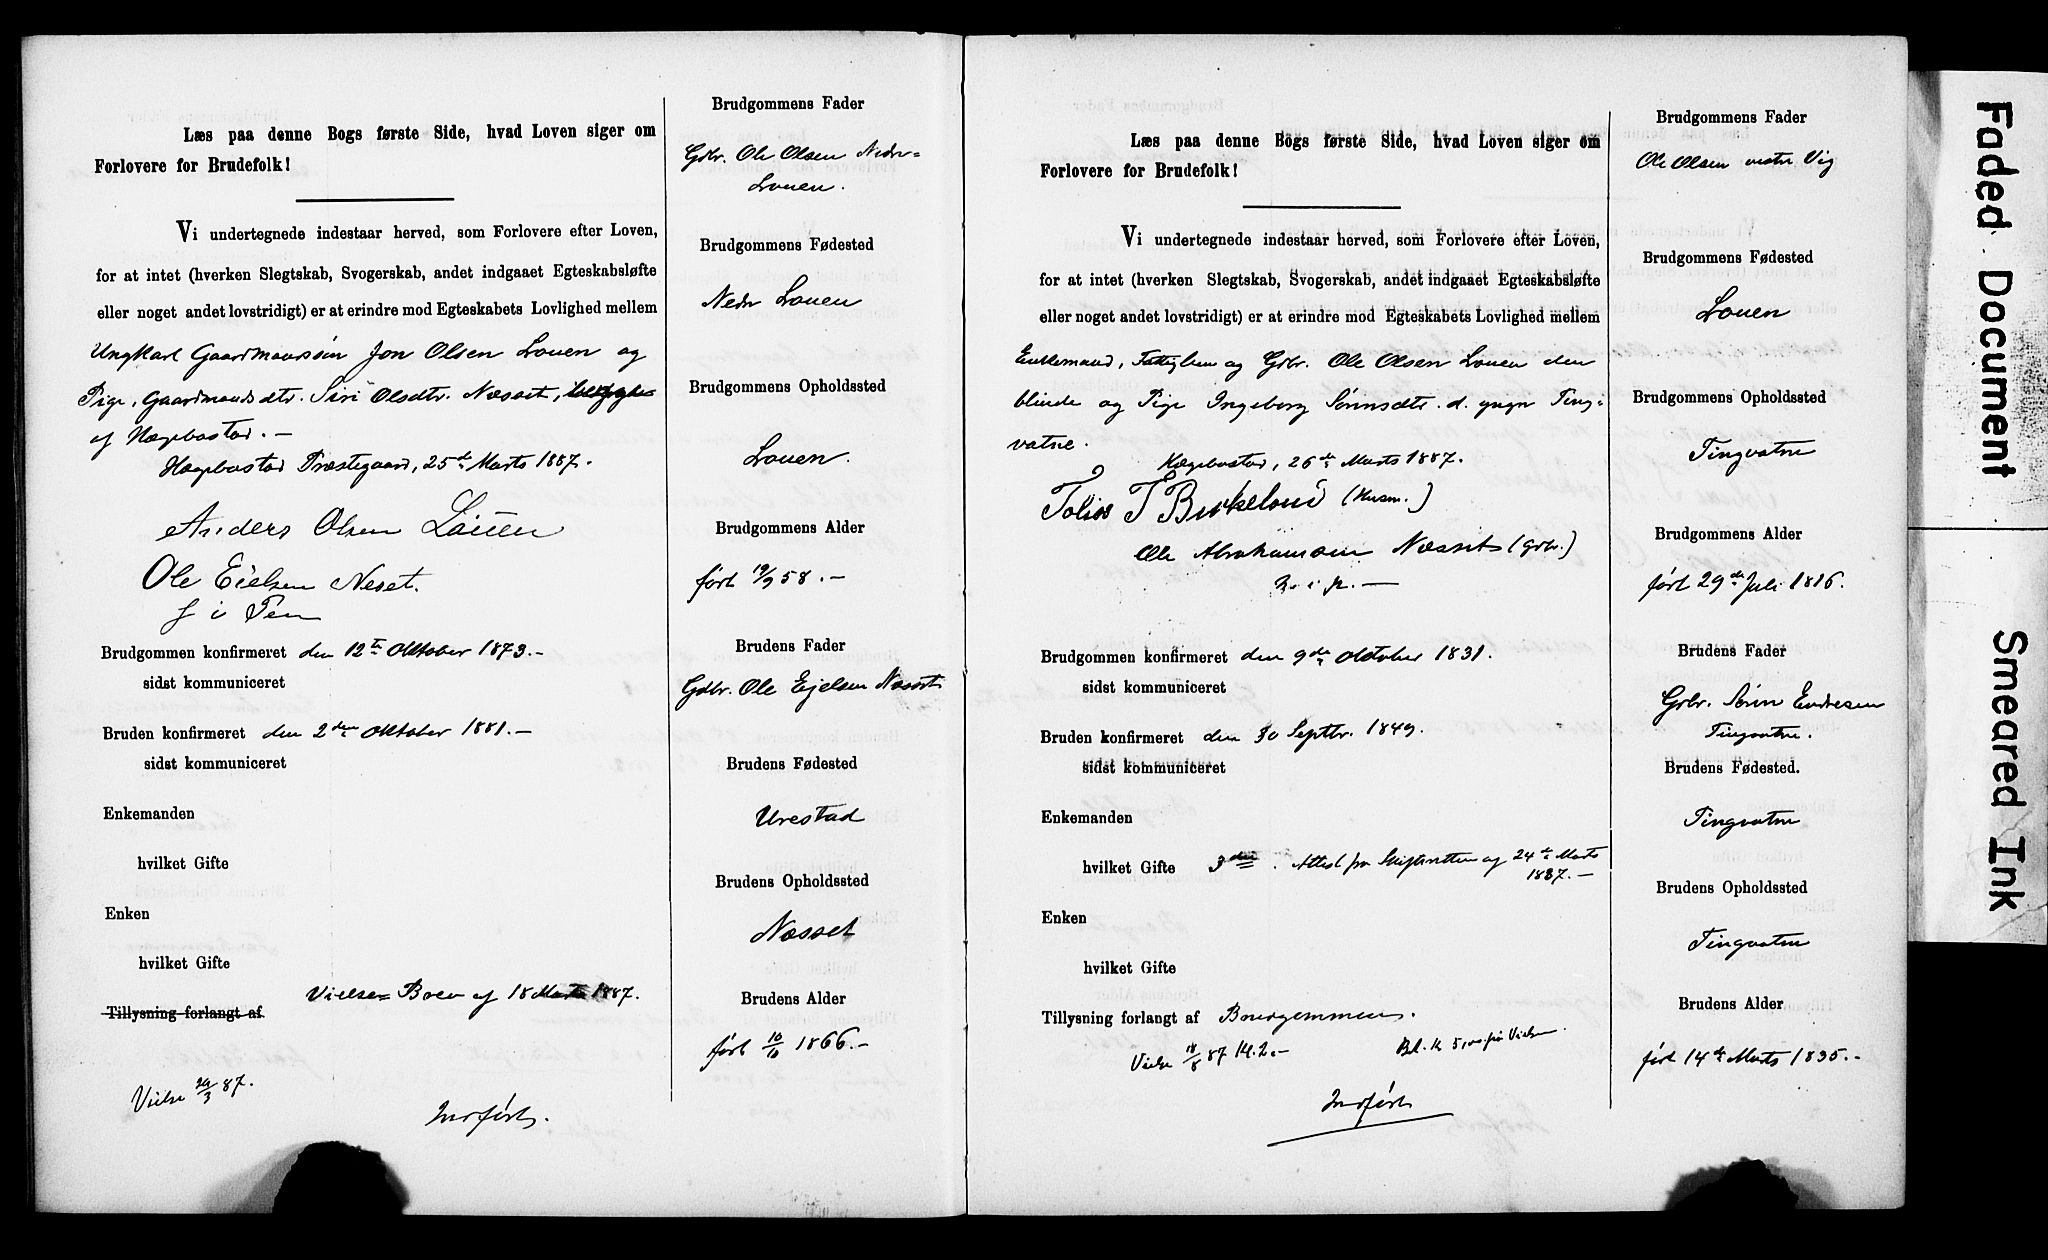 Læs paa denne Bogs første Side, hvad Loven siger om
Forlovere for Brudefolk!
Vi undertegnede indestaar herved, som Forlovere efter Loven,
for at intet (hverken Slegtskab, Svogerskab, andet indgaaet Egteskabsløfte
eller noget andet lovstridigt) er at erindre mod Egteskabets Lovlighed mellem
Ungkarl Gaardmandssøn Jon Olsen Lauen og
Pige, Gaardmandsdtr. Siri Olsdtr. Næsset,
af Hægebostad. -
Hægebostad Præstegaard, 25de Marts 1887.
Anders Olsen Lauen
Ole Eielsen Neset.
J i Pen
Brudgommen konfirmeret den 12te Oktober 1873. -
sidst kommuniceret
Bruden konfirmeret den 2den Oktober 1881. -
sidst kommuniceret
Enkemanden
hvilket Gifte
Enken
hvilket Gifte
Vielse= Brev af 18 Marts 1887.
Tillysning forlangt af
Vielse 29/3 87.
Indført.
Brudgommens Fader
Gdbr. Ole Olsen Nedre-
Lauen.
Brudgommens Fødested
Nedr Lauen
Brudgommens Opholdssted
Lauen.
Brudgommens Alder
født 19/9 58. -
Brudens Fader
Gdbr. Ole Ejelsen Næsset
Brudens Fødested
Urestad
Brudens Opholdssted
Næsset
Brudens Alder
født 10/10 1866. -
Læs paa denne Bogs første Side, hvad Loven siger om
Forlovere for Brudefolk!
Vi undertegnede indestaar herved, som Forlovere efter Loven,
for at intet (hverken Slegtskab, Svogerskab, andet indgaaet Egteskabsløfte
eller noget andet lovstridigt) er at erindre mod Egteskabets Lovlighed mellem
Enkemand, Fattiglem og Gdbr. Ole Olsen Lauen den
blinde og Pige Ingeborg Sørensdtr. d. yngr Ting-
vatne.
Hægebostad, 26de Marts 1887.
Tolius T Birkeland (Husm.)
Ole Abrahamsen Næsset (Gdbr.)
m. i p. -
Brudgommen konfirmeret den 9de Oktober 1831.
sidst kommuniceret
Bruden konfirmeret den 30 Septbr. 1849.
sidst kommuniceret
Enkemanden
hvilket Gifte 3die. Attest fra Skifteretten af 24de Marts
1887. -
Enken
hvilket Gifte
Tillysning forlangt af Brudgommen.
Vielse 18/8 87 Kl. 2. - Bet. Kr 5,00 for Vielsen.
Indført
Brudgommens Fader
Ole Olsen vestre Vig
Brudgommens Fødested
Lauen
Brudgommens Opholdssted
Tingvatne
Brudgommens Alder
født 29de Juli 1816.
Brudens Fader
Gdbr. Søren Endresen
Tingvatne.
Brudens Fødested.
Tingvatne
Brudens Opholdssted
Tingvatne
Brudens Alder
født 14de Marts 1835. -
Faded Document
Smeared Ink